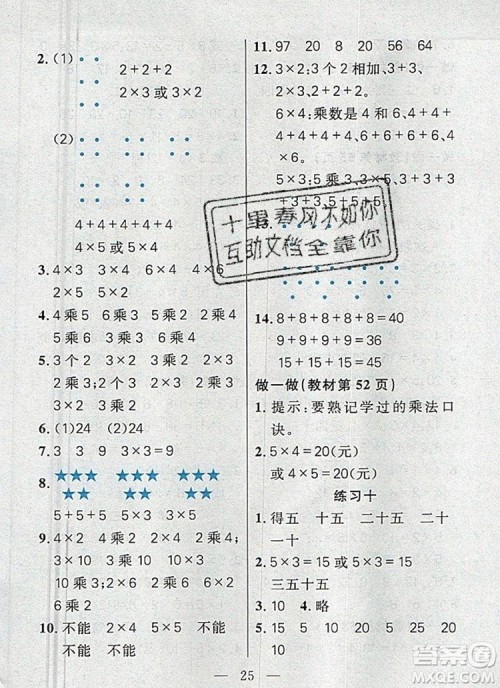 2. (1)
2+2+2
2×3或3×2
(2)
4+4+4+4+4
4×5或5×4
3. 4×5 3×2 6×4 4×6
5×2
4. 4乘5 6乘3 2乘4 2乘5
5. 3个2 2×3 3×2 2乘3
3乘2
6. (1)24 (2)24
7. 3 3 9 3×3=9
8.
5+5+5 5×3 3×5
9. 4×2 2×4 4乘2 2乘4;
3×10 10×3 3乘10
10乘3; 2×6 6×2
2乘6 6乘2
10. 不能 2×4 5×5 不能
不能 不能
11. 97 20 8 20 56 64
12. 3×2;3个2相加、3+3、
2+2+2。
6×4;乘数是4和6、4+4+
4+4+4+4、6+6+6+6、4
×6。
3×5;5×3、5乘3、3+3+3
+3+3、5+5+5
14. 8+8+8+8+8=40
9+9+9+9=36
15+15+15=45
做一做(教材第52页)
1. 提示:要熟记学过的乘法口
诀。
2. 5×4=20(元)
或4×5=20(元)
练习十
1. 得五 十五 二十五 二十
一十
2. 5×3=15 或 3×5=15
三五十五
3. 10 4. 略
5. 15 20 15 5 20
10
25
十里春风不如你
互助文档全靠你
作业帮
MXQE.COM